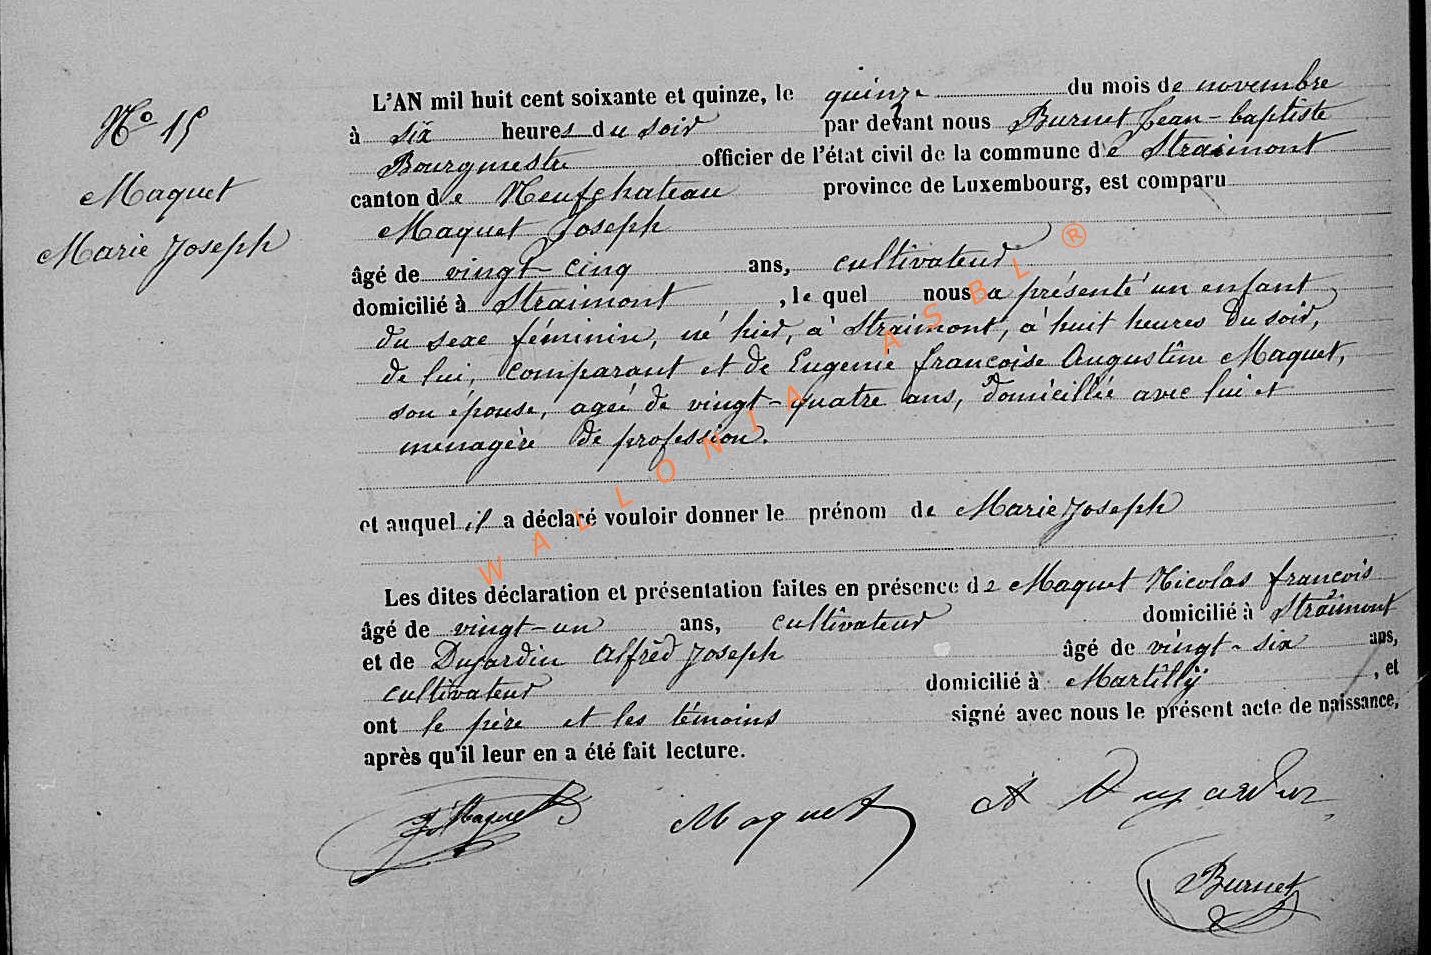 N° 15
Maquet
Marie Joseph
L'AN mil huit cent soixante et quinze, le quinze du mois de novembre
à six heures du soir par devant nous Burnet Jean-baptiste
Bourgmestre officier de l'état civil de la commune de Straimont
canton de Neufchateau province de Luxembourg, est comparu
Maquet Joseph
âgé de vingt-cinq ans, cultivateur
domicilié à Straimont, le quel nous a présenté un enfant
du sexe féminin, né hier, à Straimont, à huit heures du soir,
de lui, comparant et de Eugenie francoise Augustine Maquet,
son épouse, ageé de vingt-quatre ans, domiciliée avec lui et
menagère de profession.
et auquel il a déclaré vouloir donner le prénom de Marie Joseph
Les dites déclaration et présentation faites en présence de Maquet Nicolas francois
âgé de vingt-un ans, cultivateur domicilié à Straimont
et de Dujardin Alfred Joseph âgé de vingt-six ans,
cultivateur domicilié à Martilly, et
ont le père et les témoins signé avec nous le présent acte de naissance,
après qu'il leur en a été fait lecture.
J Maquet Maquet A Dujardin
Burnet
WALLONIA ASBL ®